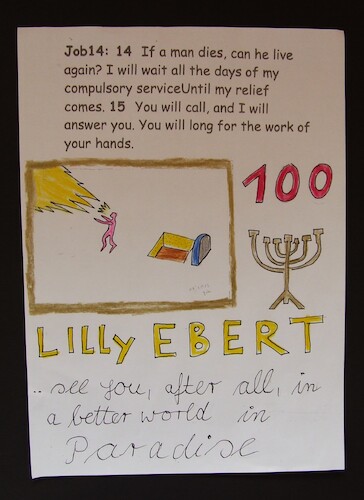 Job14: 14 If a man dies, can he live
again? I will wait all the days of my
compulsory serviceUntil my relief
comes. 15 You will call, and I will
answer you. You will long for the work of
your hands.
100
LILLY EBERT
.. see you, after all, in
a better world in
Paradise